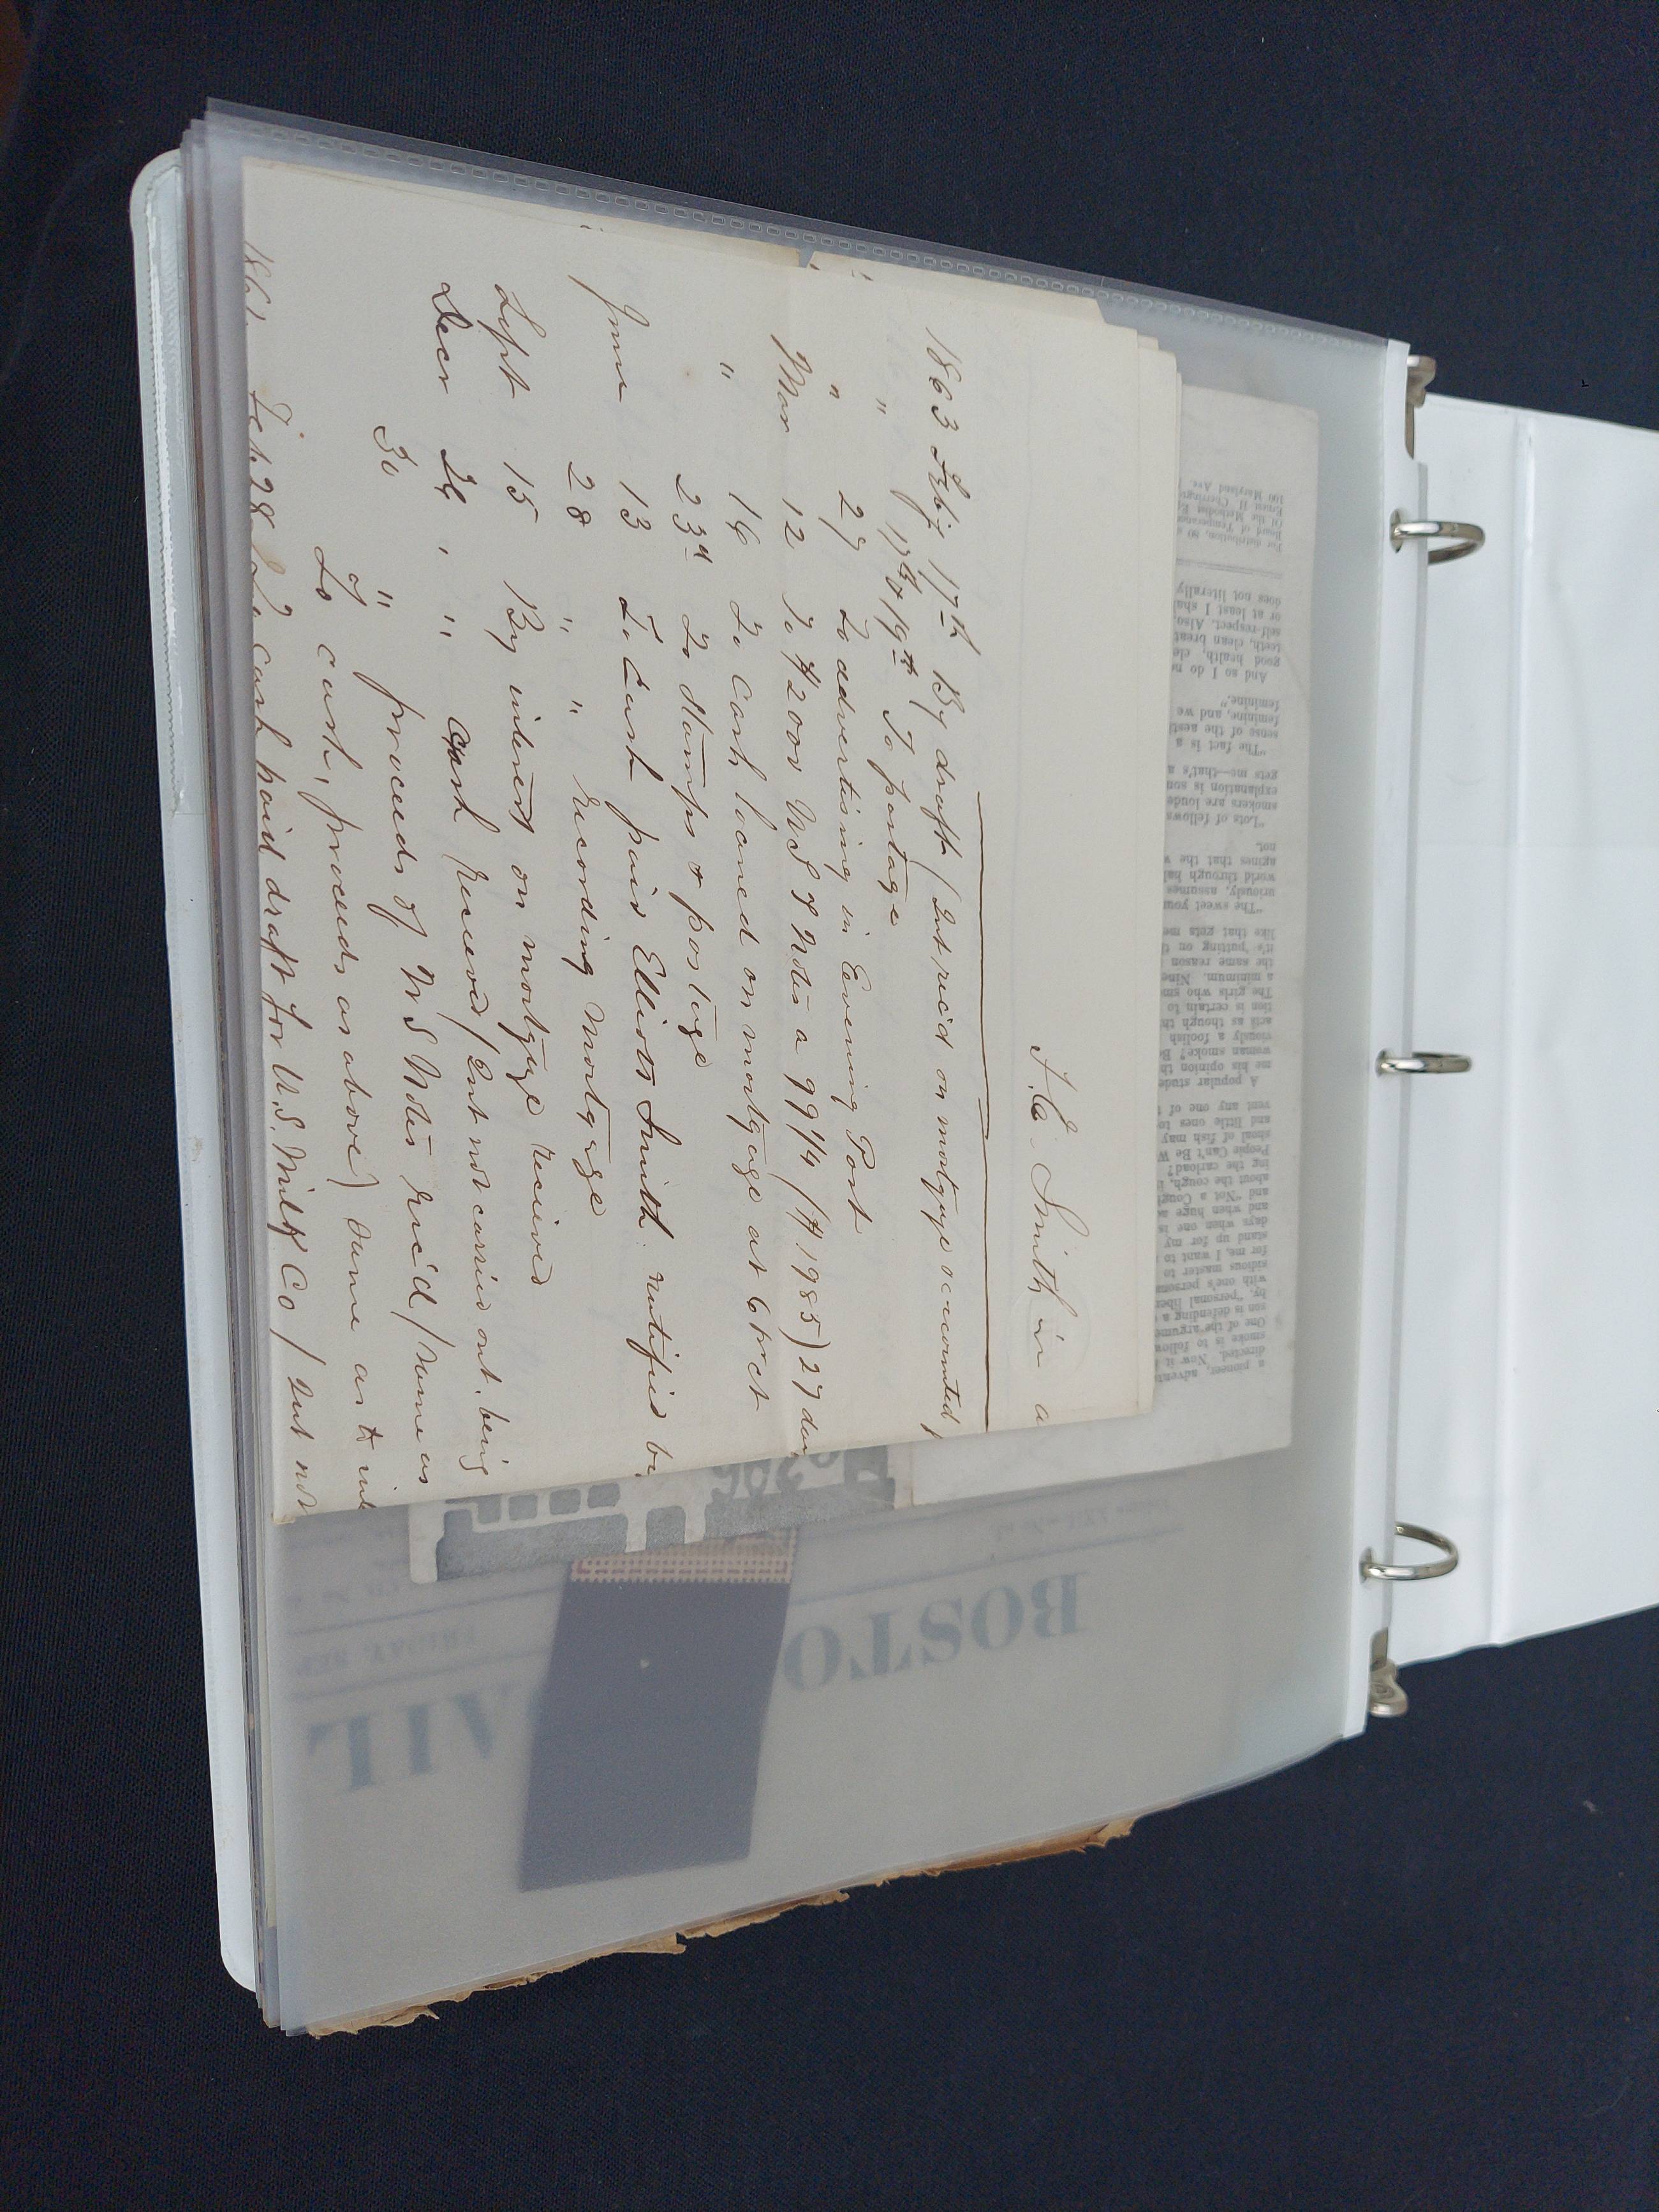 H.A. Smith in a
1863 Feby 17th By draft (Int rec'd on mortgage accounted
" 17th & 19th To postage
" 27 To advertising in Evening Post
Mar 12 To $2000 US 8 Notes a 99 1/4 ($1985) 27 da
" 16 To Cash loaned on mortgage at 6 pr ct
23d To Stamps & postage
June 13 To Cash paid Elliott Smith
28 " " recording mortgage
Sept 15 By interest on mortgage received
Decr 24 " " Cash Received / Int not carried out. being
30 " proceeds of US Notes rec'd / same as
To cash, proceeds as above) same as
Feb. 28 To cash paid draft for U.S. Milk Co / Int not
a pioneer, advent
directed. Now it i
smoke is to follow
One of the argume
son is defending a
by, "personal liber
with one's persona
sidious master to
for me, I want to
stand up for my
days when one is
and when huge ad
and "Not a Cough
about the cough, i
ing the carload?
People Can't Be W
shoal of fish may
and little ones to
vent any one of t
A popular stude
me his opinion th
woman smoke? Be
viously a foolish
acts as though th
tion is certain to
The girls who sm
a minimum. Nine
the same reason
it's 'putting on t
like that gets me
"The sweet your
uriously, assumes
world through hal
agines that the w
not.
"Lots of fellows
smokers are loude
explanation is son
gets me—that's a
"The fact is a
sense of the aesth
feminine, and we
feminine."
And so I do no
good health, cle
teeth, clean breat
self-respect. Also,
or at least I shal
does not literally
For distribution, 50 c
Board of Temperance
Of the Methodist E
Ernest H. Cherring
100 Maryland Ave.
BOSTO
AIL
FRIDAY, SEP